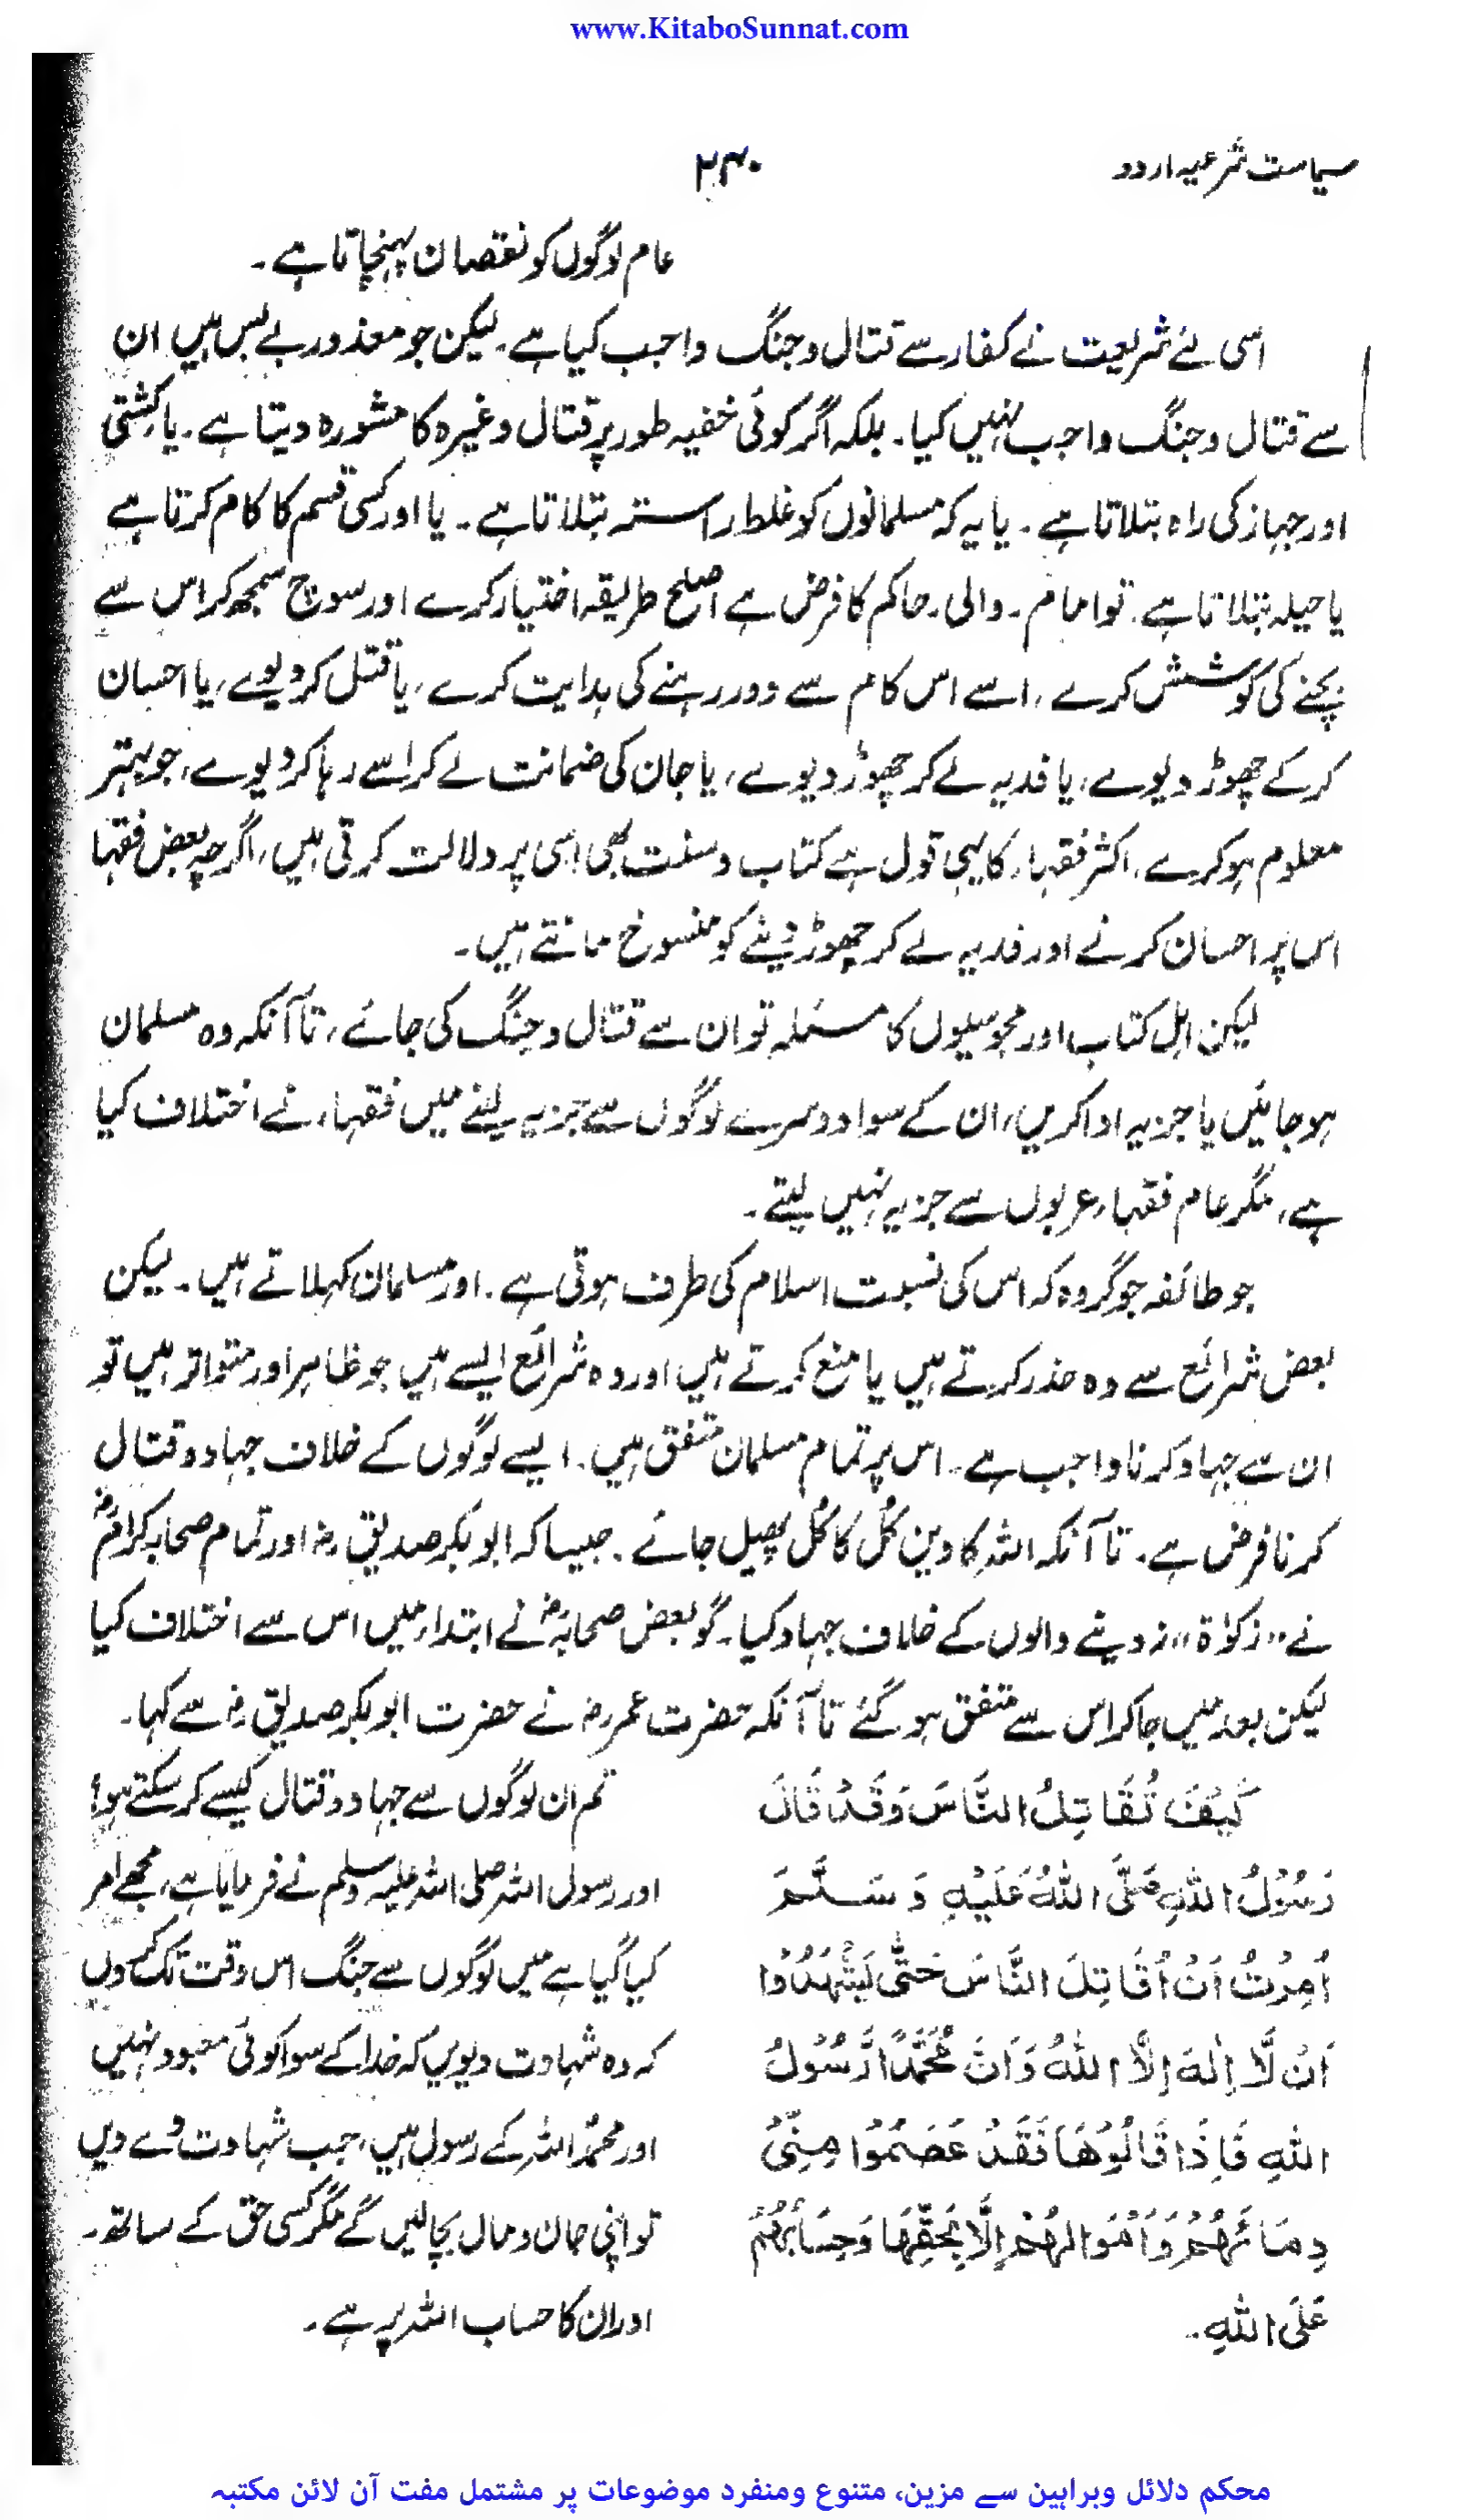 www.KitaboSunnat.com
سیاست شرعیہ اردو
۲۴۰
عام لوگوں کو نقصان پہنچاتا ہے۔
اسی لئے شریعت نے کفار سے قتال و جنگ واجب کیا ہے۔ لیکن جو معذور بے بس ہیں ان
سے قتال و جنگ واجب نہیں کیا۔ بلکہ اگر کوئی خفیہ طور پر قتال وغیرہ کا مشورہ دیتا ہے۔ یا کشتی
اور جہاز کی راہ بتلاتا ہے۔ یا یہ کہ مسلمانوں کو غلط راستہ بتلاتا ہے۔ یا اور کسی قسم کا کام کرتا ہے
یا حیلہ بتلاتا ہے۔ تو امام۔ والی۔ حاکم کا فرض ہے اصلح طریقہ اختیار کرے اور سوچ سمجھ کر اس سے
بچنے کی کوشش کرے، اسے اس کام سے دور رہنے کی ہدایت کرے، یا قتل کر دیوے، یا احسان
کر کے چھوڑ دیوے، یا فدیہ لے کر چھوڑ دیوے، یا جان کی ضمانت لے کر اسے رہا کر دیوے، جو بہتر
معلوم ہو کرے، اکثر فقہاء کا یہی قول ہے کتاب و سنت بھی اسی پر دلالت کرتی ہیں، اگرچہ بعض فقہا
اس پر احسان کرنے اور فدیہ لے کر چھوڑ دینے کو منسوخ مانتے ہیں۔
لیکن اہل کتاب اور مجوسیوں کا مسئلہ تو ان سے قتال و جنگ کی جائے، تا آنکہ وہ مسلمان
ہو جائیں یا جزیہ ادا کریں، ان کے سوا دوسرے لوگوں سے جزیہ لینے میں فقہاء نے اختلاف کیا
ہے، مگر عام فقہاء عربوں سے جزیہ نہیں لیتے۔
جو طائفہ جو گروہ کہ اس کی نسبت اسلام کی طرف ہوتی ہے۔ اور مسلمان کہلاتے ہیں۔ لیکن
بعض شرائع سے وہ حذر کرتے ہیں یا منع کرتے ہیں اور وہ شرائع ایسے ہیں جو ظاہر اور متواتر ہیں تو
ان سے جہاد کرنا واجب ہے۔ اس پر تمام مسلمان متفق ہیں۔ ایسے لوگوں کے خلاف جہاد و قتال
کرنا فرض ہے۔ تا آنکہ اللہ کا دین کُل کا کُل پھیل جائے۔ جیسا کہ ابوبکر صدیق رضؓ اور تمام صحابہ کرامؓ
نے "زکوٰۃ" نہ دینے والوں کے خلاف جہاد کیا۔ گو بعض صحابہؓ نے ابتداء میں اس سے اختلاف کیا
لیکن بعد میں جا کر اس سے متفق ہو گئے تا آنکہ حضرت عمر رضؓ نے حضرت ابوبکر صدیق رضؓ سے کہا۔
كَيْفَ تُقَاتِلُ النَّاسَ وَقَدْ قَالَ
رَسُوْلُ اللّٰهِ صَلَّى اللّٰهُ عَلَيْهِ وَسَلَّمَ
اُمِرْتُ اَنْ اُقَاتِلَ النَّاسَ حَتّٰى يَشْهَدُوْا
اَنْ لَّا اِلٰهَ اِلَّا اللّٰهُ وَاَنَّ مُحَمَّدًا رَّسُوْلُ
اللّٰهِ فَاِذَا قَالُوْهَا فَقَدْ عَصَمُوْا مِنِّىْ
دِمَائَهُمْ وَاَمْوَالَهُمْ اِلَّا بِحَقِّهَا وَحِسَابُهُمْ
عَلَى اللّٰهِ۔
تم ان لوگوں سے جہاد و قتال کیسے کر سکتے ہو؟
اور رسول اللہ صلی اللہ علیہ وسلم نے فرمایا ہے، مجھے امر
کیا گیا ہے میں لوگوں سے جنگ اس وقت تک کروں
کہ وہ شہادت دیویں کہ خدا کے سوا کوئی معبود نہیں
اور محمدؐ اللہ کے رسول ہیں، جب شہادت دے دیں
تو اپنی جان و مال بچا لیں گے مگر کسی حق کے ساتھ۔
اور ان کا حساب اللہ پر ہے۔
محکم دلائل وبراہین سے مزین، متنوع ومنفرد موضوعات پر مشتمل مفت آن لائن مکتبہ